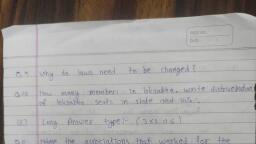 Q.9 Why to laws need to be changed?
Q.10 How many members in loksabha. write distribution
of loksabha seats in state and
Long Answer type:- (3x2=6)
Name the associations that worked for the